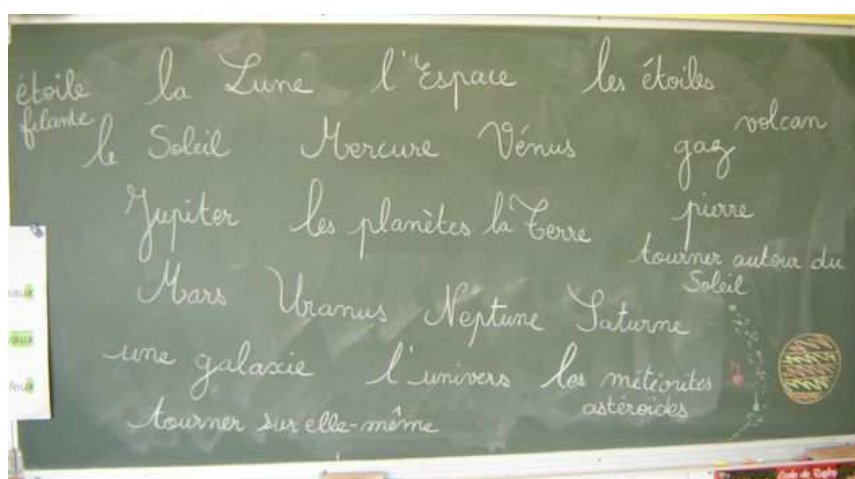 étoile filante la Lune l'Espace les étoiles
le Soleil Mercure Vénus gaz volcan
Jupiter les planètes la Terre pierre
tourner autour du Soleil
Mars Uranus Neptune Saturne
une galaxie l'univers les météorites
astéroïdes
tourner sur elle-même